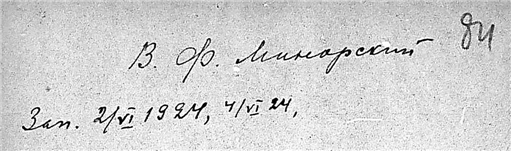 84
В. Ф. Минорский
Зап. 2/VI 1924, 4/VI 24,